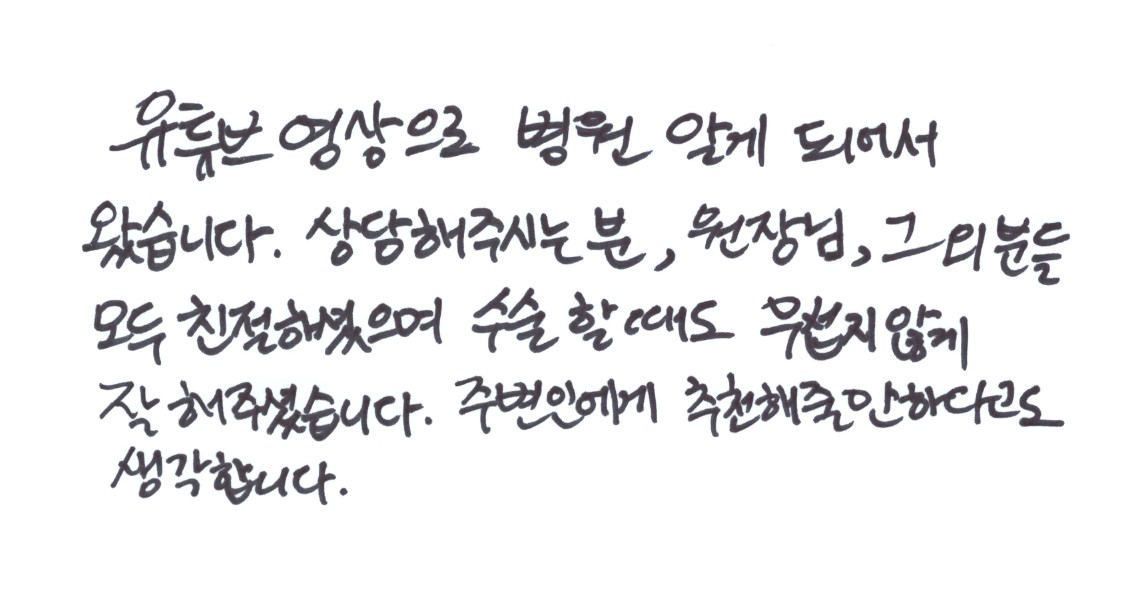 유튜브 영상으로 병원 알게 되어서
왔습니다. 상담해주시는 분, 원장님, 그 외분들
모두 친절하셨으며 수술 할 때도 무섭지 않게
잘 해주셨습니다. 주변인에게 추천해줄만하다고도
생각합니다.